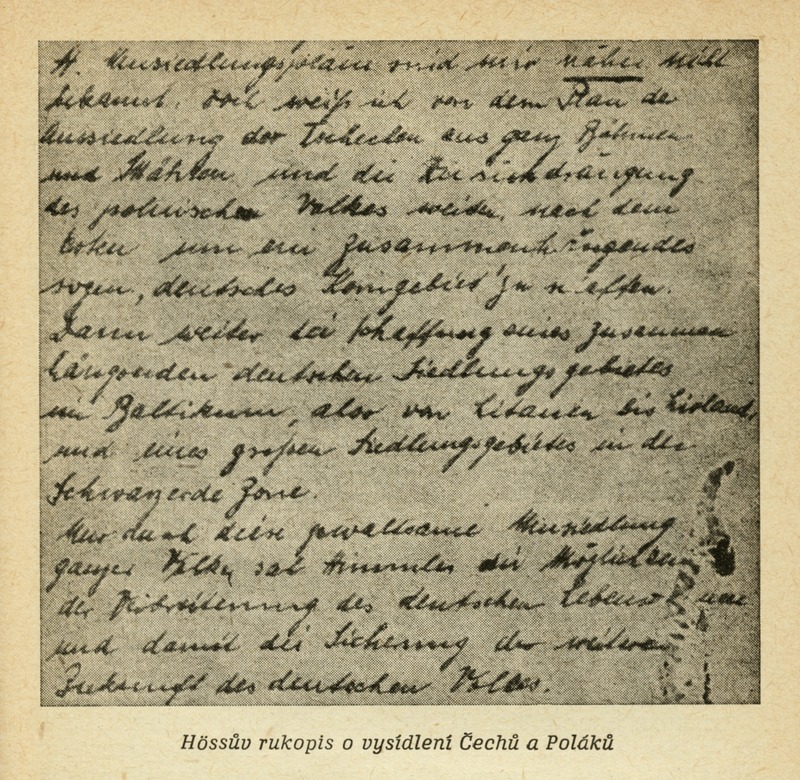 H. Umsiedlungspläne sind mir näher nicht
bekannt, doch weiß ich von dem Plan der
Aussiedlung der Tschechen aus ganz Böhmen
und Mähren und die Zurückdrängung
des polnischen Volkes weiter nach dem
Osten um ein zusammenhängendes
sogen. deutsches Korngebiet zu
Dann weiter die Schaffung eines zusammen
hängenden deutschen Siedlungsgebietes
im Baltikum, also von Litauen bis Livland,
und eines großen Siedlungsgebietes in der
Schwarzerde Zone.
Nur durch diese gewaltsame Umsiedlung
ganzer Völker sah Himmler die
der Verbreiterung des deutschen
und damit die Sicherung der weiteren
Zukunft des deutschen Volkes.
Hössův rukopis o vysídlení Čechů a Poláků